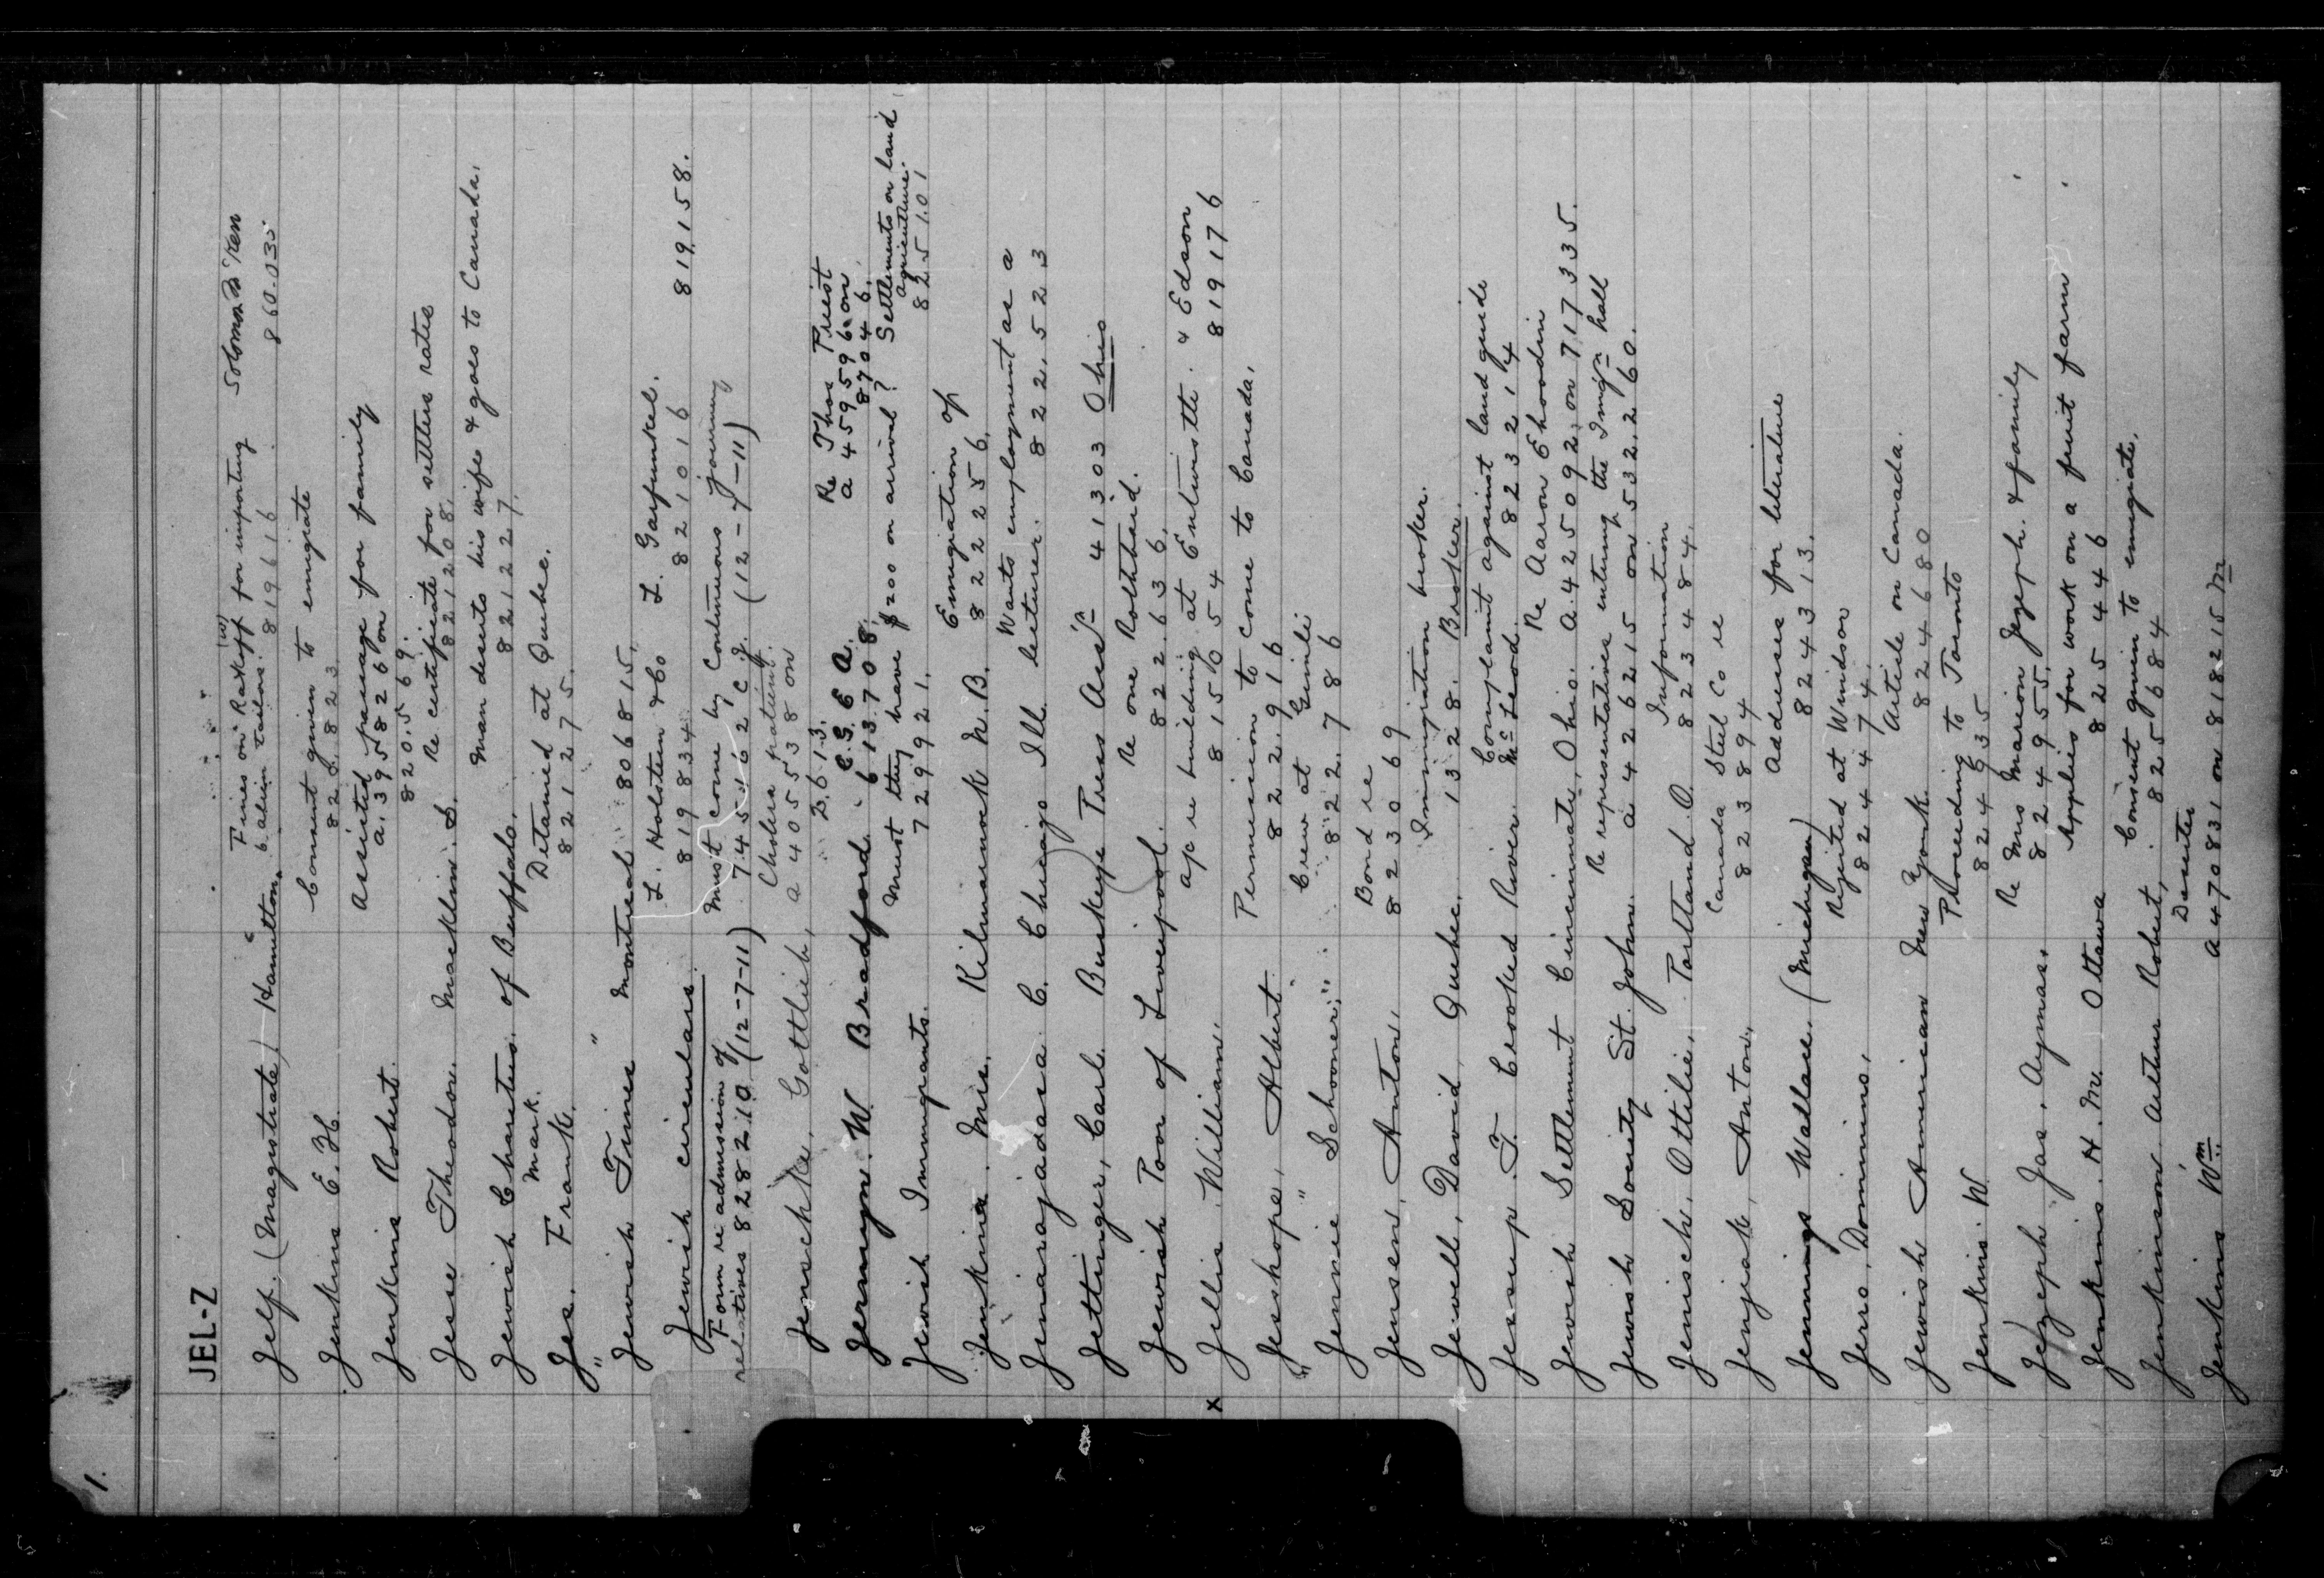 1.
JEL-Z
Jelf. (Magistrate) Hamilton. Fines on Rakoff for importing 6 alien tailors. 819616 Solomon B Ken 860.035
Jenkins E. H. Consent given to emigrate
Jenkins Robert. Assisted passage for family
a. 395826 on
820.569.
Jesse Theodor. Macklin. S. Re certificate for settlers rates
821208.
Jewish Charities. of Buffalo. Man deserts his wife & goes to Canada.
821227.
Jes. Mark. Frank. Detained at Quebec.
821275.
" "
Jewish Times Montreal 806815.
Jewish circulars. L. Holsten & Co L. Garfunkel.
819834 821016 819158.
Form re admission of
relatives 828210 (12-7-11)
Must come by Continuous journey
745162 C.J. (12-7-11)
Jenschke, Gottlieb, Cholera patient.
a 405538 on
2.613.
Jermyn. W. Bradford. C.S.E.A. 613708. Re Thos Priest
a 459596 on
87046.
Jewish Immigrants. Must they have $200 on arrival? Settlements on land
agriculture.
729921. 825101
Jenkins. Mrs. Kilmarnock N.B. Emigration of
822256.
Jenarajadasa C. Chicago Ill. Wants employment as a
lecturer. 822.523
Jettinger, Carl. Buckeye Press Ass. 41303 Ohio
Jewish Poor of Liverpool. Re one Rothheid.
822.636.
x Jellis. William. ap re building at Entwistle. & Edson
815654 819176
Jesshope, Albert. Permission to come to Canada.
822.916
" "
Jennie Schooner. Crew at Gimli
822.786
Jensen, Anton. Bond re
823069
Jewell, David Quebec. Immigration broker.
1328. Broker.
Jessup. F. Crooked River. Complaint against land guide
McLeod. 823214
Jewish Settlement Cincinnati, Ohio. Re Aaron Ehoodin
A. 425092, on 717335.
Jewish Society St. John. Re representatives entering the Imign hall
a 426215 on 532.260.
Jenisch, Ottilie, Portland O. Information
823484.
Jenjak, Anton, Canada Steel Co re
823894
Jennings Wallace. (Michigan) Addresses for literature
824313.
Jerro, Dominino, Rejected at Windsor
824474.
Jewish American New York. Article on Canada.
824680
Jenkins. W Proceeding to Toronto
824635
Jezeph Jas. Aymas. Re Mrs Marion Jezeph. & family
824955.
Jenkins. H. M. Ottawa Applies for work on a fruit farm
825446
Jenkinson Arthur Robert, Consent given to emigrate.
825684
Jenkins Wm. Deserter
a 470831 on 818215 M